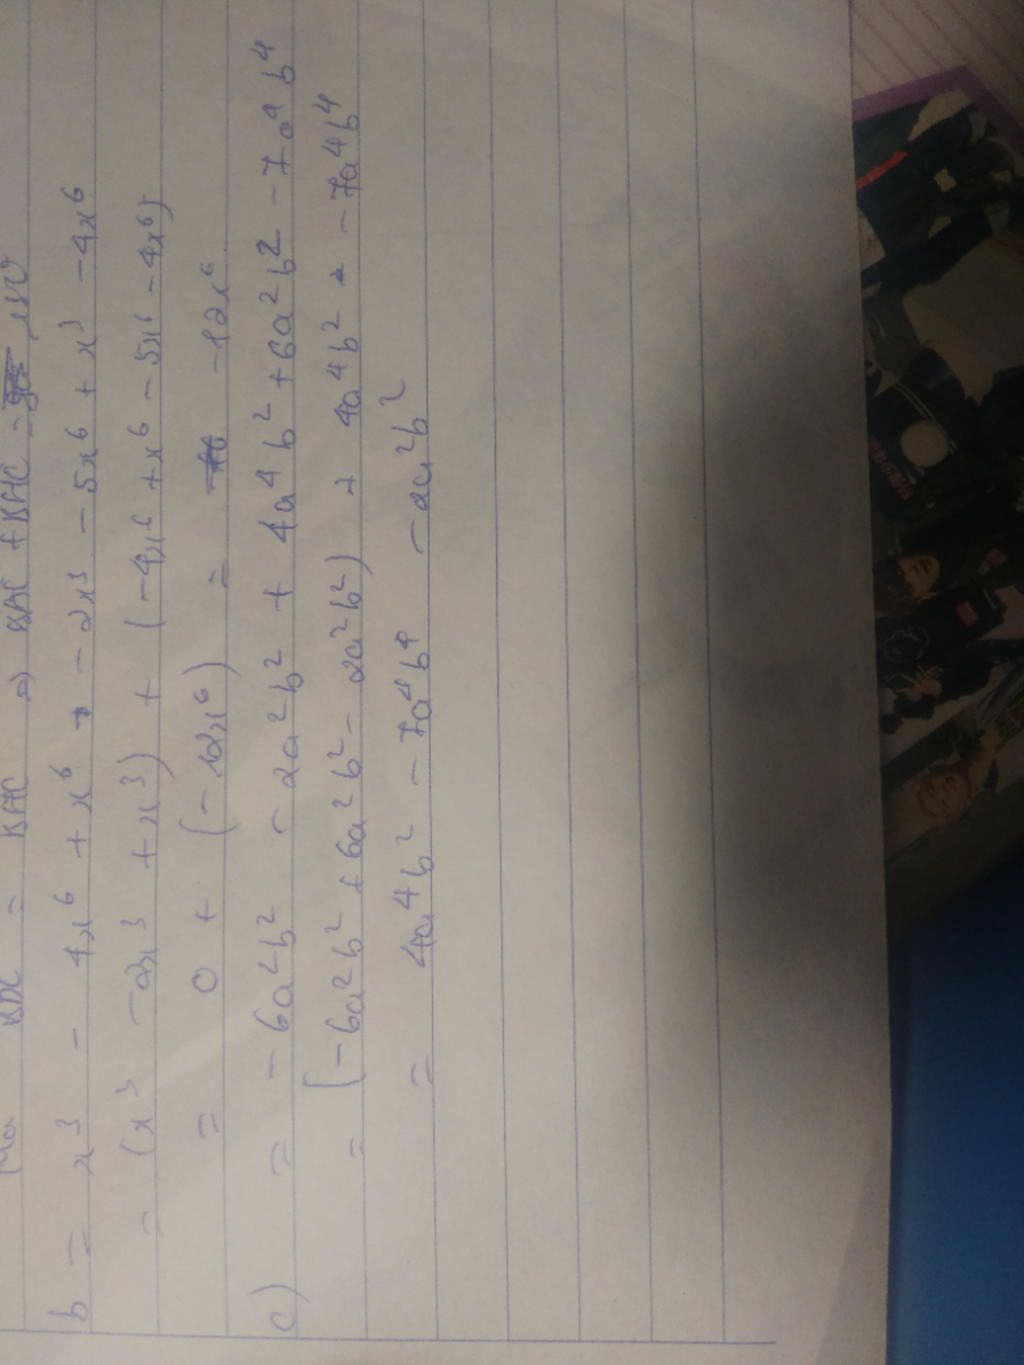 KDC = KAC => KAC + KAC =
b = x³ - 4x⁶ + x⁶ - 2x³ - 5x⁶ + x³ - 4x⁶
= (x³ - 2x³ + x³) + (-4x⁶ + x⁶ - 5x⁶ - 4x⁶)
= 0 + (-12x⁶) = -12x⁶
c) = -6a²b² - 2a²b² + 4a⁴b² + 6a²b² - 7a⁴b⁴
= (-6a²b² + 6a²b² - 2a²b²) + 4a⁴b² - 7a⁴b⁴
= 4a⁴b² - 7a⁴b⁴ - 2a²b²